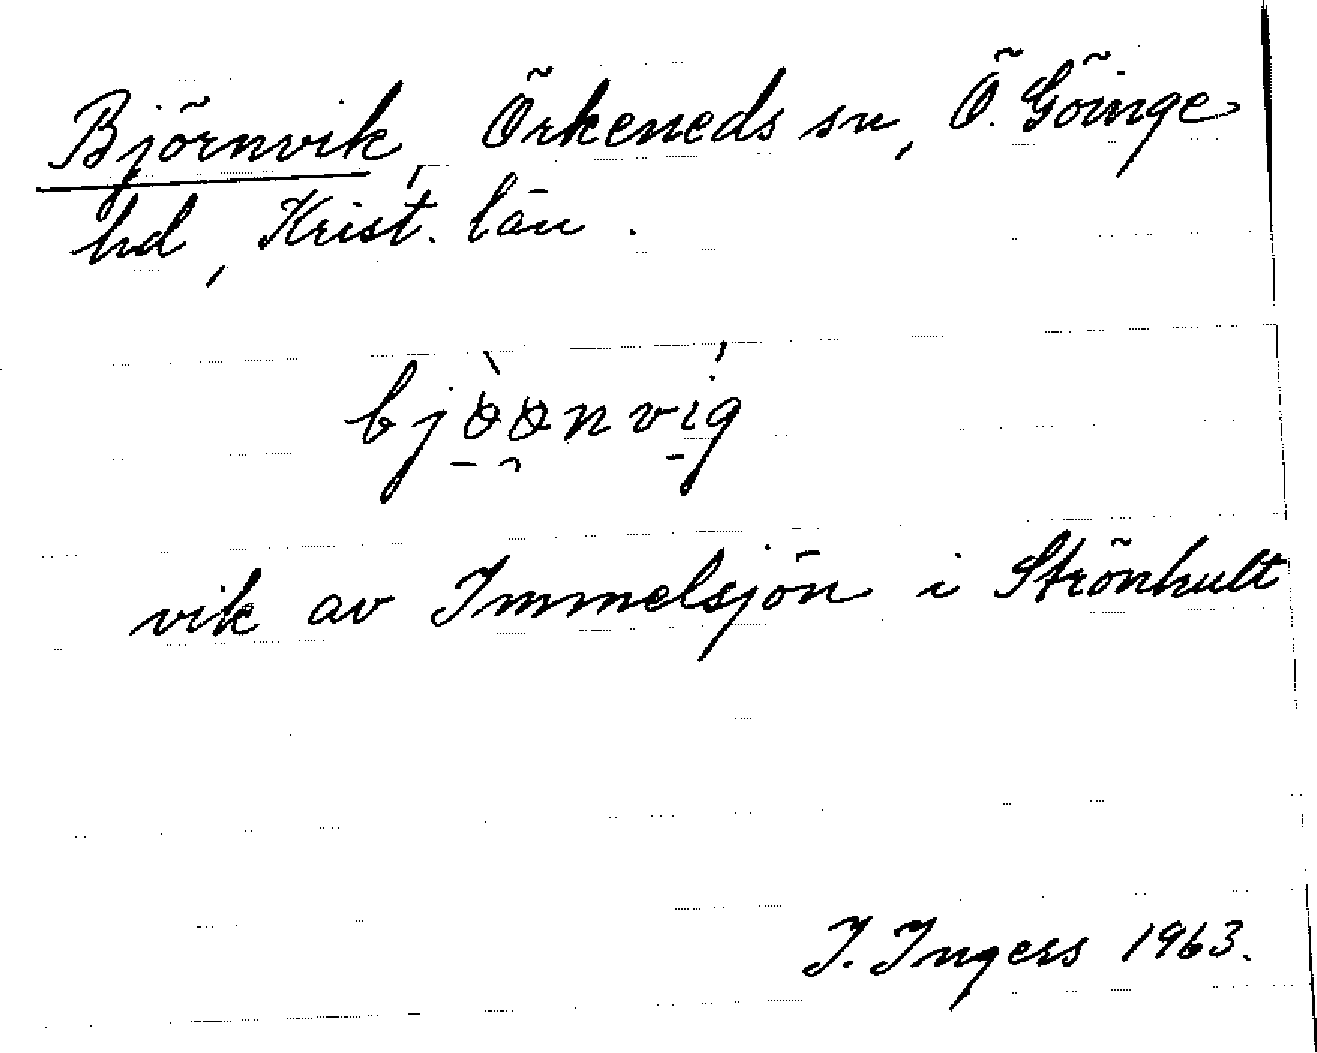 Björnvik, Örkeneds sn, Ö. Göinge
hd, Krist. län.
bjòönvíg
vik av Immelsjön i Strönhult
I. Ingers 1963.